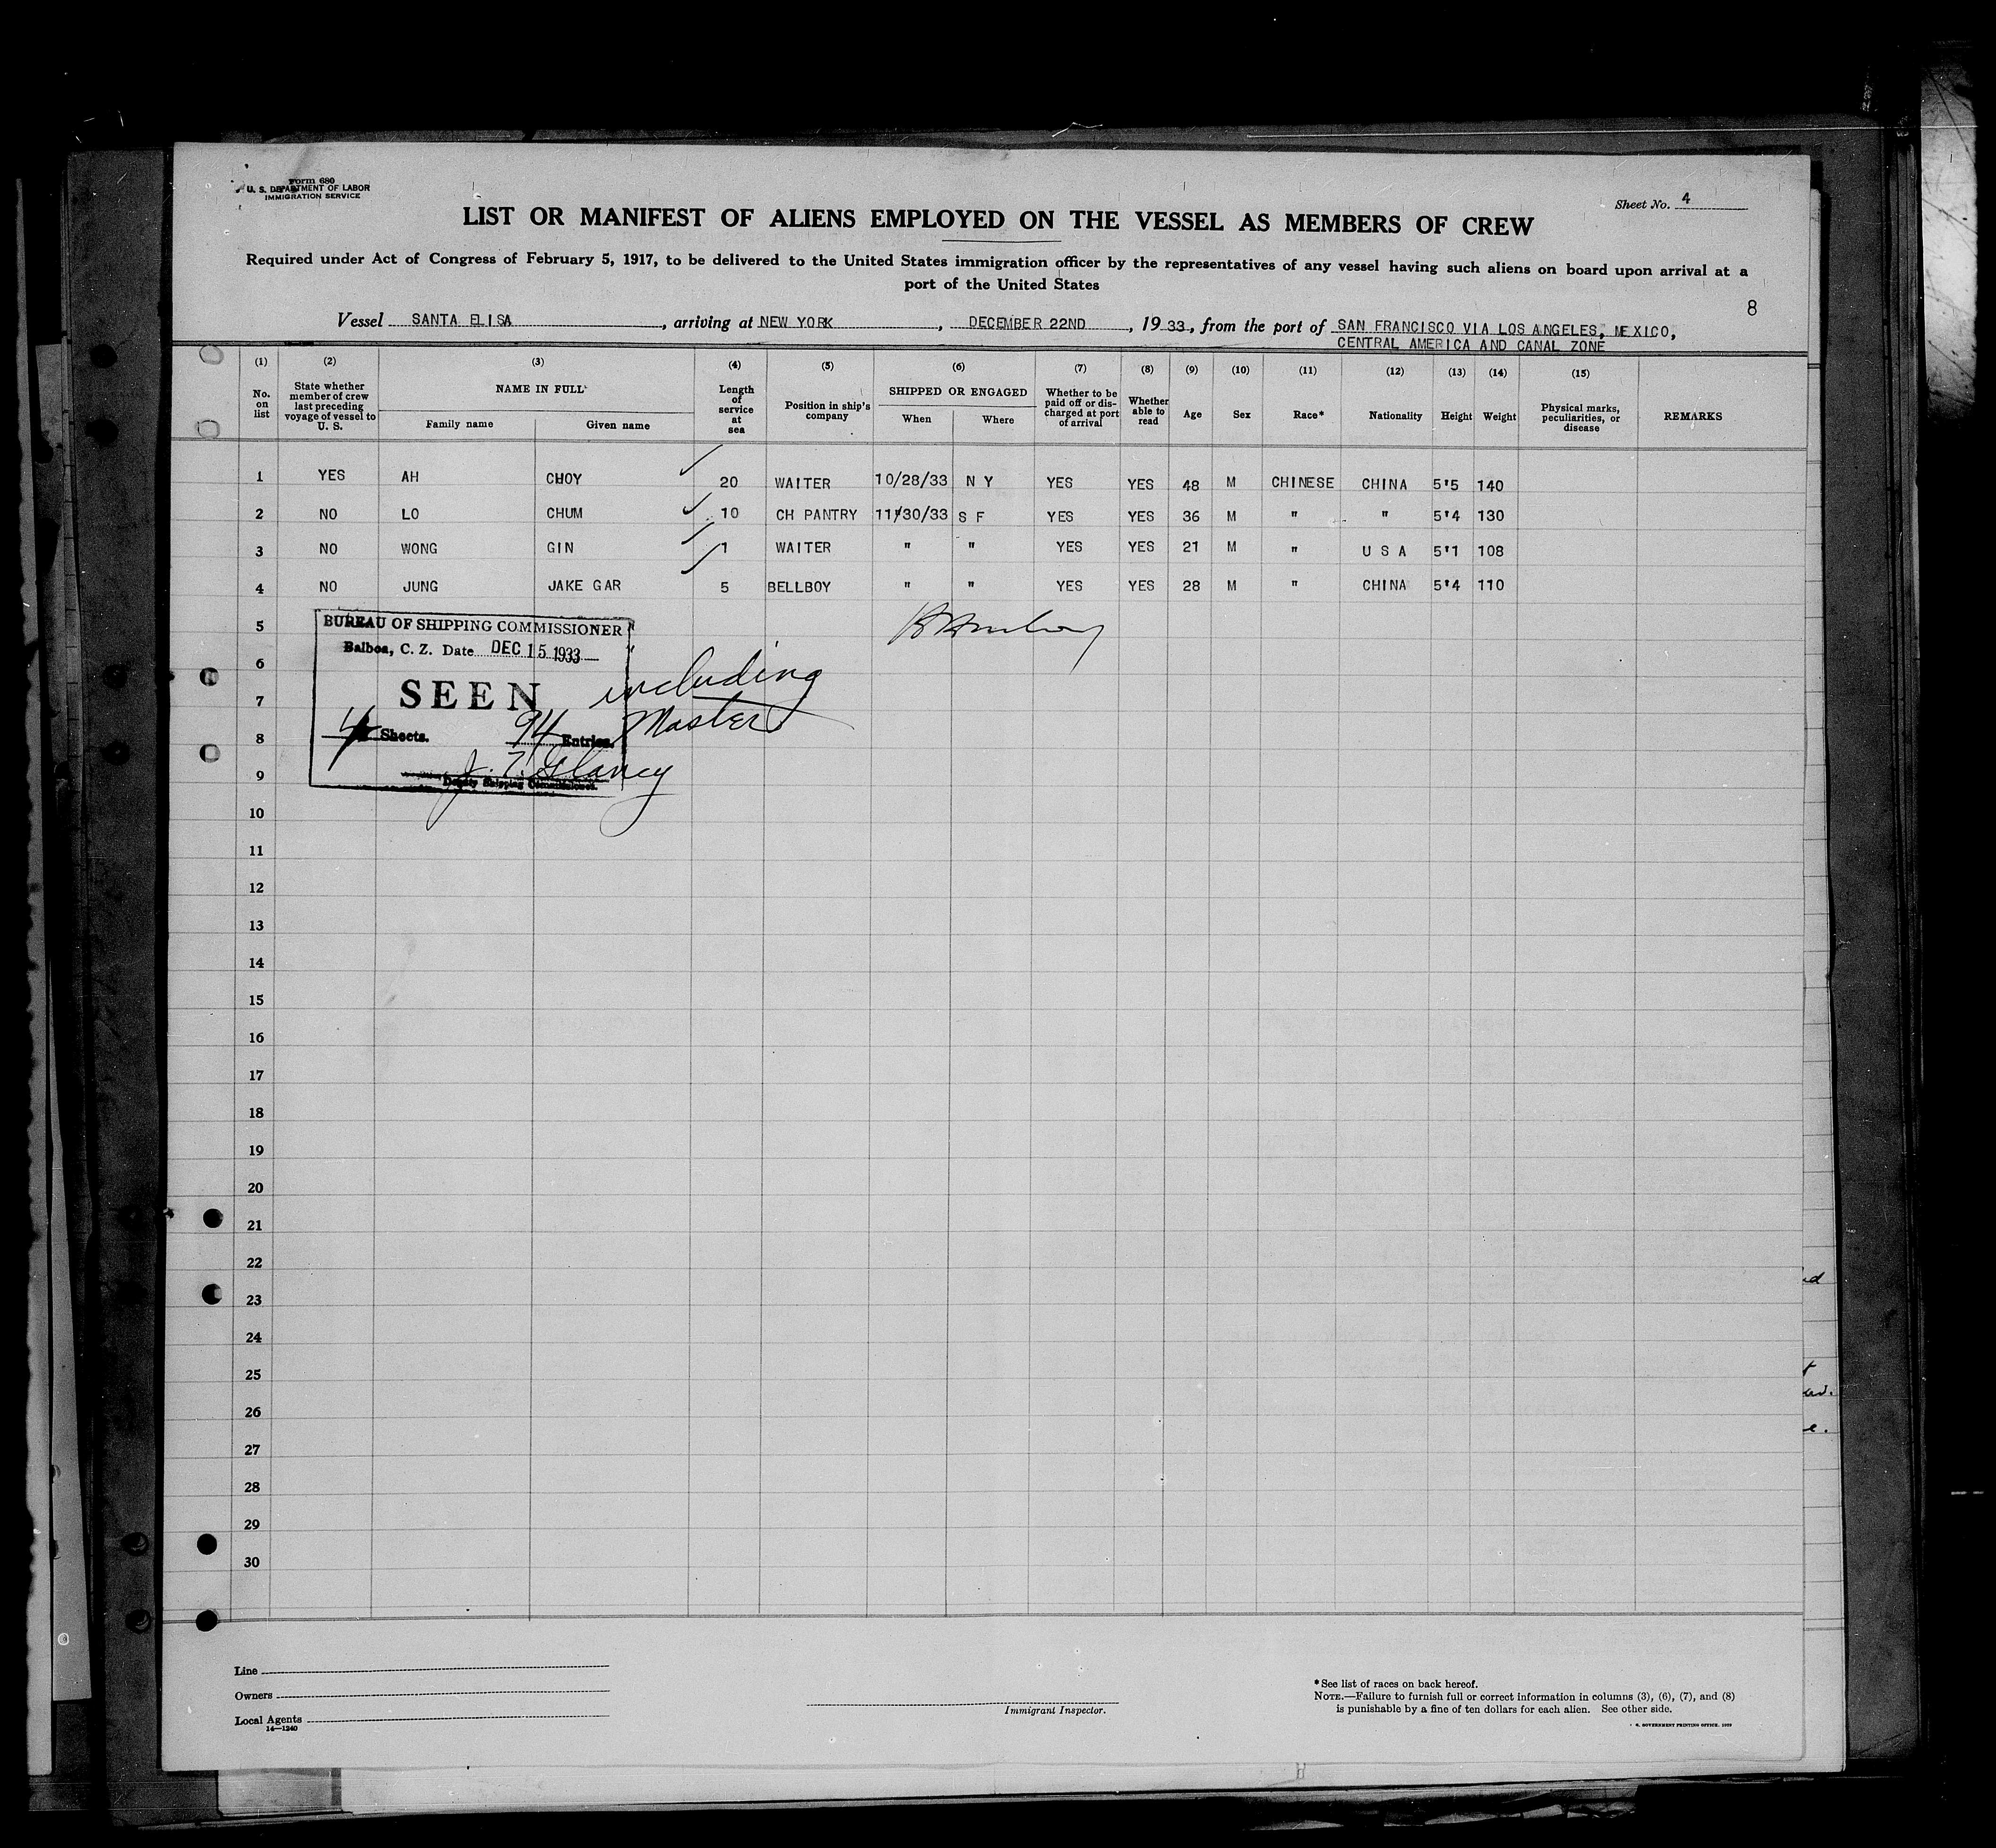 Form 680
U. S. DEPARTMENT OF LABOR
IMMIGRATION SERVICE
Sheet No. 4
LIST OR MANIFEST OF ALIENS EMPLOYED ON THE VESSEL AS MEMBERS OF CREW
Required under Act of Congress of February 5, 1917, to be delivered to the United States immigration officer by the representatives of any vessel having such aliens on board upon arrival at a
port of the United States
8
Vessel SANTA ELISA, arriving at NEW YORK, DECEMBER 22ND, 1933, from the port of SAN FRANCISCO VIA LOS ANGELES, MEXICO,
CENTRAL AMERICA AND CANAL ZONE
(1) (2) (3) (4) (5) (6) (7) (8) (9) (10) (11) (12) (13) (14) (15)
No. on list
State whether member of crew last preceding voyage of vessel to U. S.
NAME IN FULL
Family name Given name
Length of service at sea
Position in ship's company
SHIPPED OR ENGAGED
When Where
Whether to be paid off or discharged at port of arrival
Whether able to read
Age Sex Race* Nationality Height Weight
Physical marks, peculiarities, or disease
REMARKS
1 YES AH CHOY 20 WAITER 10/28/33 N Y YES YES 48 M CHINESE CHINA 5'5 140
2 NO LO CHUM 10 CH PANTRY 11/30/33 S F YES YES 36 M " " 5'4 130
3 NO WONG GIN 1 WAITER " " YES YES 21 M " U S A 5'1 108
4 NO JUNG JAKE GAR 5 BELLBOY " " YES YES 28 M " CHINA 5'4 110
5
6
7
8
9
10
11
12
13
14
15
16
17
18
19
20
21
22
23
24
25
26
27
28
29
30
BUREAU OF SHIPPING COMMISSIONER
Balboa, C. Z. Date DEC 15 1933
SEEN including
4 Sheets. 94 Entries. Master
J. T. Glancy
Deputy Shipping Commissioner.
Line
Owners
Local Agents
14—1240
Immigrant Inspector.
*See list of races on back hereof.
NOTE.—Failure to furnish full or correct information in columns (3), (6), (7), and (8)
is punishable by a fine of ten dollars for each alien. See other side.
GOVERNMENT PRINTING OFFICE